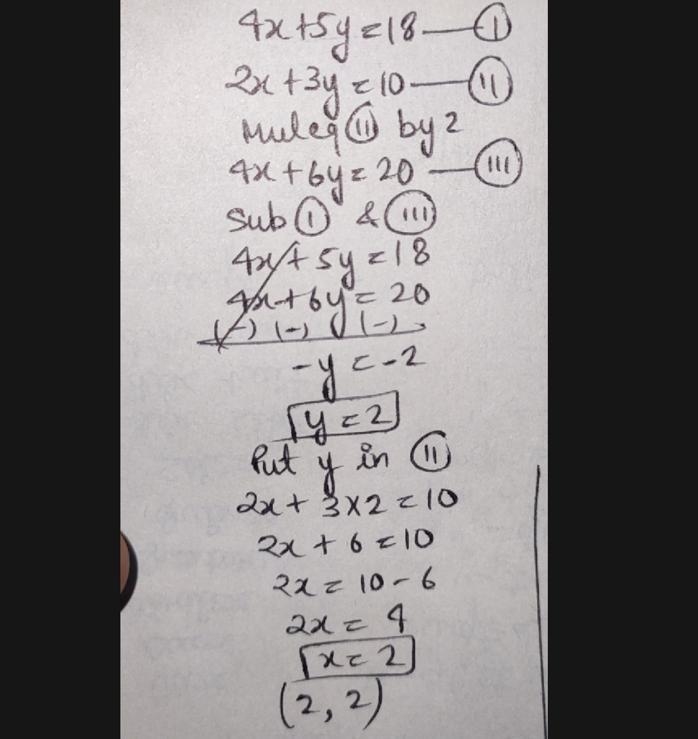 4x+5y=18—Ⓘ
2x+3y=10—(II)
Mul eq (II) by 2
4x+6y=20—(III)
Sub Ⓘ & (III)
4x+5y=18
4x+6y=20
(-) (-) (-)
-y=-2
y=2
Put y in (II)
2x+3×2=10
2x+6=10
2x=10-6
2x=4
x=2
(2,2)